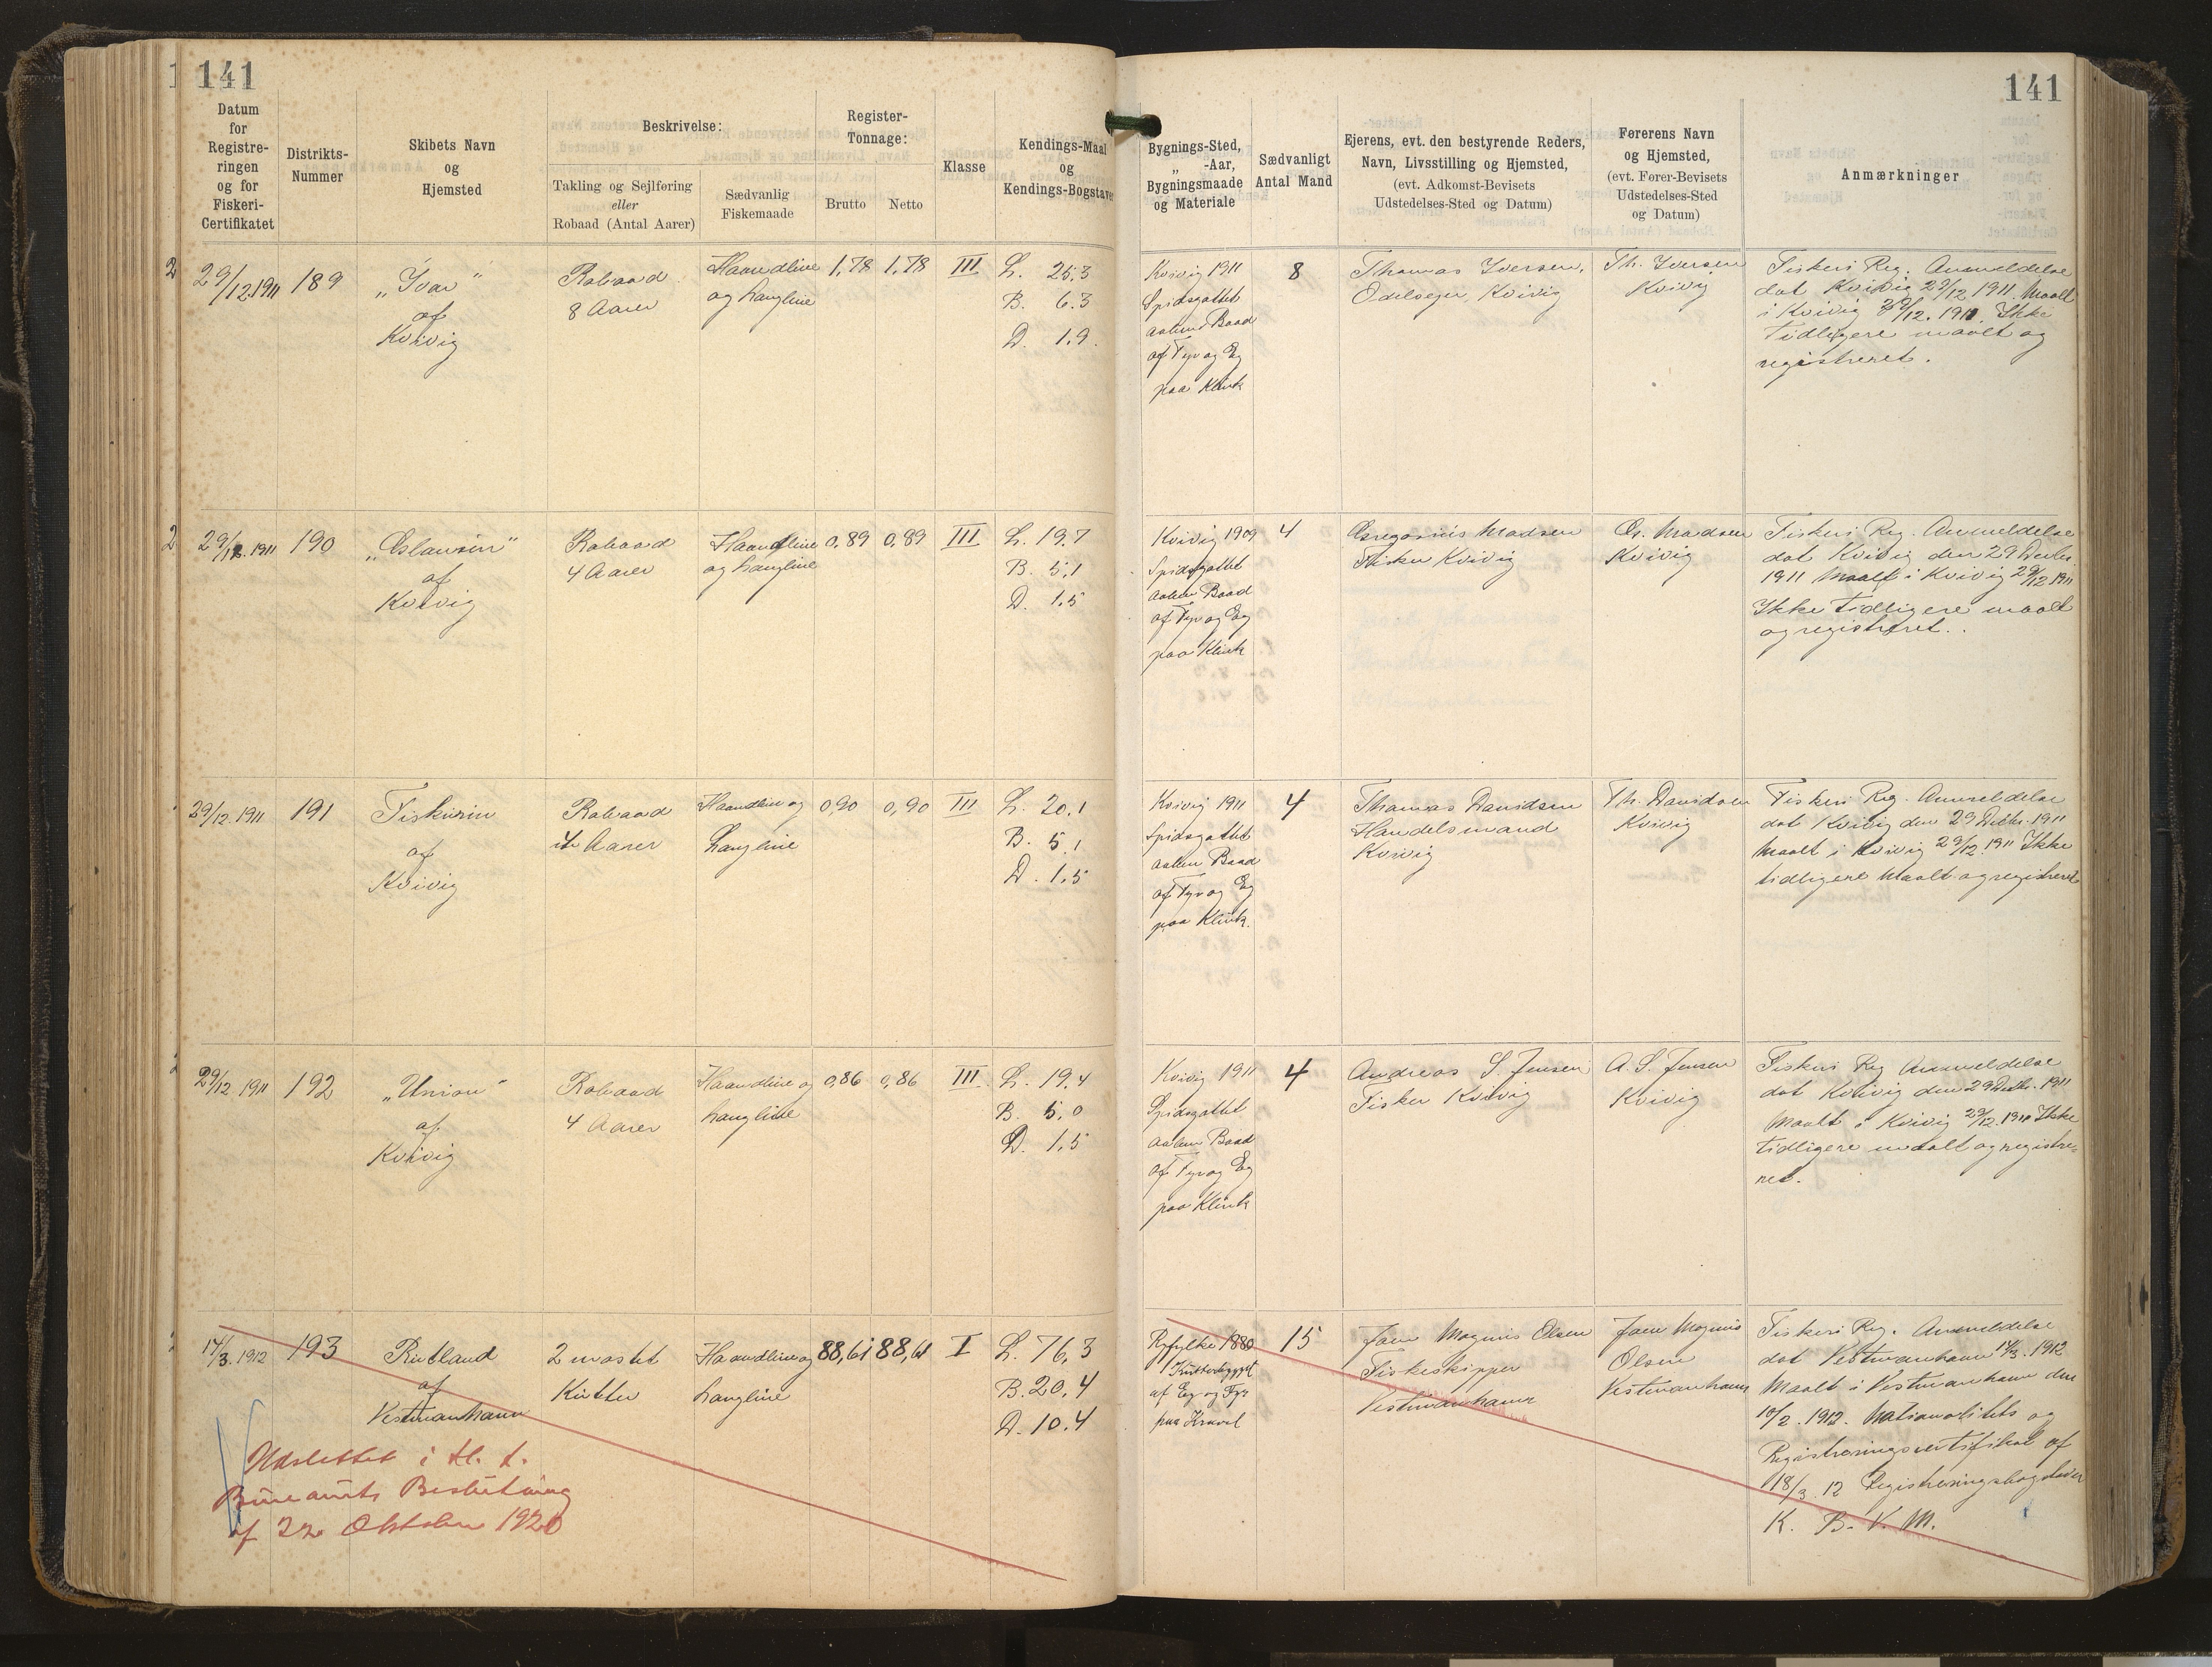 141
141
Datum
for
Registre-
ringen
og for
Fiskeri-
Certifikatet
Distrikts-
Nummer
Skibets Navn
og
Hjemsted
Beskrivelse:
Takling og Sejlføring
eller
Robaad (Antal Aarer)
Sædvanlig
Fiskemaade
Register-
Tonnage:
Brutto
Netto
Klasse
Kendings-Maal
og
Kendings-Bogstaver
Bygnings-Sted,
„ -Aar,
Bygningsmaade
og Materiale
Sædvanligt
Antal Mand
Ejerens, evt. den bestyrende Reders,
Navn, Livsstilling og Hjemsted,
(evt. Adkomst-Bevisets
Udstedelses-Sted og Datum)
Førerens Navn
og Hjemsted,
(evt. Fører-Bevisets
Udstedelses-Sted
og Datum)
Anmærkninger
29/12.1911
189
„Ivar"
af
Kvivig
Robaad
8 Aarer
Haandline
og Langline
1,78
1,78
III
L. 25.3
B. 6.3
D. 1.9.
Kvivig 1911
Spidsgattet
aaben Baad
af Fyr og Eg
paa Klink
8
Thomas Iversen,
Odelsejer, Kvivig
Th. Iversen
Kvivig
Fiskeri Reg. Anmeldelse
dat Kvivig 29/12 1911. Maalt
i Kvivig 29/12. 1911. Ikke
tidligere maalt og
registreret.
29/12.1911
190
af
Kvivig
Robaad
4 Aarer
Haandline
og Langline
0,89
0,89
III
L. 19.7
B. 5,1
D. 1.5
Kvivig 1909
Spidsgattet
aaben Baad
af Fyr og Eg
paa Klink
4
Gregorius Madsen
Fisker Kvivig
Gr. Madsen
Kvivig
Fiskeri Reg. Anmeldelse
dat Kvivig den 29 Decbr.
1911 Maalt i Kvivig 29/12 1911
Ikke tidligere maalt
og registreret.
29/12.1911
191
Fiskurin
af
Kvivig
Robaad
4 Aarer
Haandline og
Langline
0,90
0,90
III
L. 20.1
B. 5.1
D. 1.5
Kvivig 1911
Spidsgattet
aaben Baad
af Fyr og Eg
paa Klink.
4
Thomas Davidsen
Handelsmand
Kvivig
Th. Davidsen
Kvivig
Fiskeri Reg. Anmeldelse
dat Kvivig den 29 Decbr. 1911
Maalt i Kvivig 29/12. 1911 Ikke
tidligere Maalt og registreret
29/12 1911
192
„Union"
af
Kvivig
Robaad
4 Aarer
Haandline og
Langline
0,86
0,86
III.
L. 19.4
B. 5,0
D. 1,5
Kvivig 1911
Spidsgattet
aaben Baad
af Fyr og Eg
paa Klink
4
Andreas S. Jensen
Fisker Kvivig
A. S. Jensen
Kvivig
Fiskeri Reg Anmeldelse
dat Kvivig den 29 Decbr. 1911
Maalt i Kvivig 29/12.1911 Ikke
tidligere maalt og registre-
ret.
14/3.1912
193
Rutland
af
Vestmanhavn
2 mastet
Kutter
Haandline og
Langline
88,61
88,61
I
L. 76,3
B. 20,4
D. 10.4
Ryfylke 1880
af Eg og Fyr
paa Kravel
15
Joen Magnus Olsen
Fiskeskipper
Vestmanhavn
Joen Magnus
Olsen
Vestmanhavn
Fiskeri Reg. Anmeldelse
dat Vestmanhavn 14/3.1912
Maalt i Vestmanhavn den
10/2.1912. Nationalitets og
Registreringscertifikat af
18/3.12 Registreringsbogstaver
K. B. V. M.
Udslettet i H. t.
Bureauets Beslutning
af 22 Oktober 1920